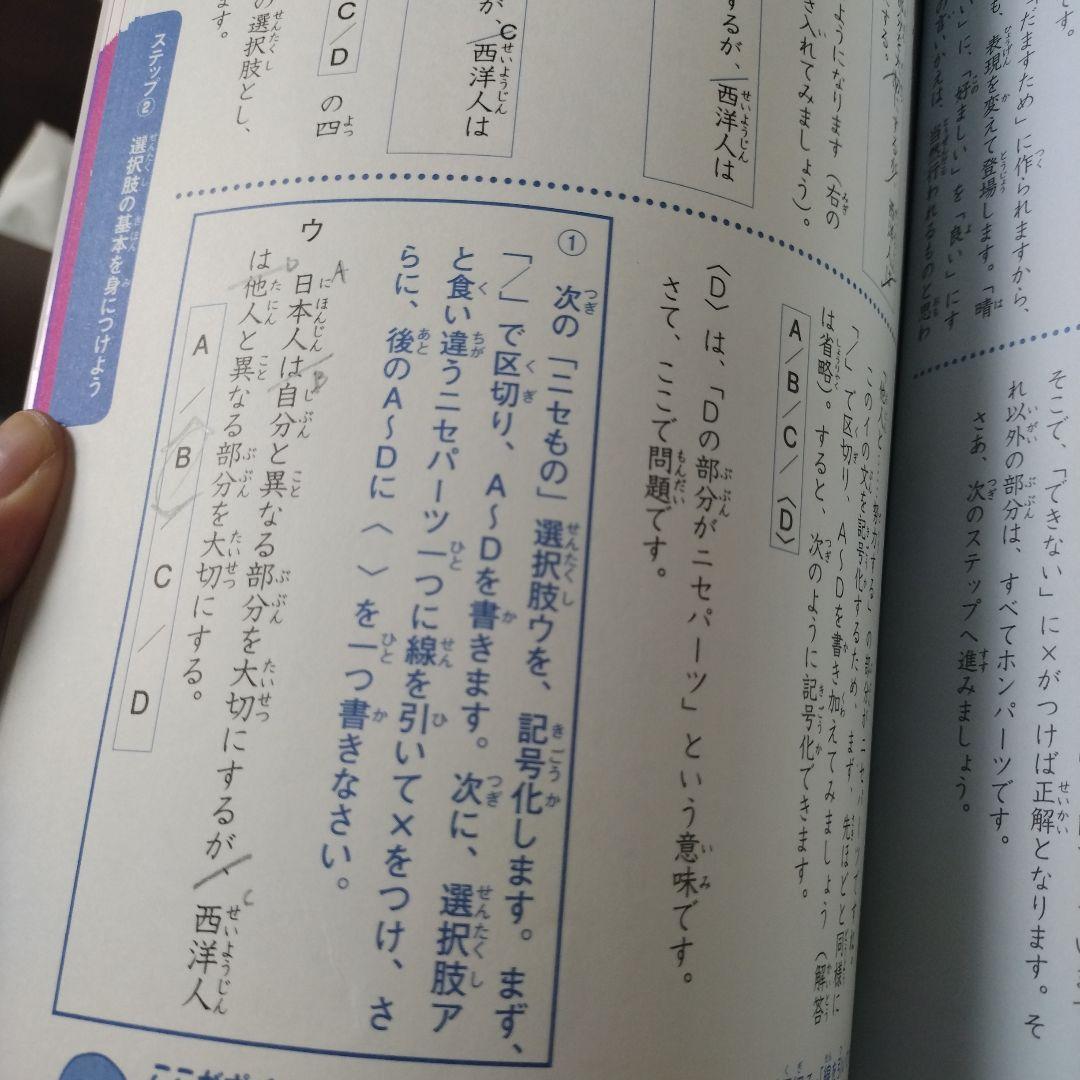 だますため」に作られますから、
も、表現を変えて登場します。「晴
い」に、「好ましい」を「良い」にす
のずいかえは、当然行われるものと思わ
です。
そこで、「できない」に×がつけば正解となります。そ
れ以外の部分は、すべてホンパーツです。
さあ、次のステップへ進みましょう。
ようになります（右の
き入れてみましょう）。
するが、／西洋人は
C
が、／西洋人は
C／D の四
の選択肢とし、
ます。
このイの文を記号化するため、まず、先ほどと同様に
「／」で区切り、A～Dを書き加えてみましょう（解答
は省略）。すると、次のように記号化できます。
A／B／C／〈D〉
〈D〉は、「Dの部分がニセパーツ」という意味です。
さて、ここで問題です。
① 次の「ニセもの」選択肢ウを、記号化します。まず、
「／」で区切り、A～Dを書きます。次に、選択肢ア
と食い違うニセパーツ一つに線を引いて×をつけ、さ
らに、後のA～Dに〈 〉を一つ書きなさい。
ウ 日本人は自分と異なる部分を大切にするが、／西洋人
は他人と異なる部分を大切にする。
A
B
C
D
A／B／C／D
ステップ② 選択肢の基本を身につけよう